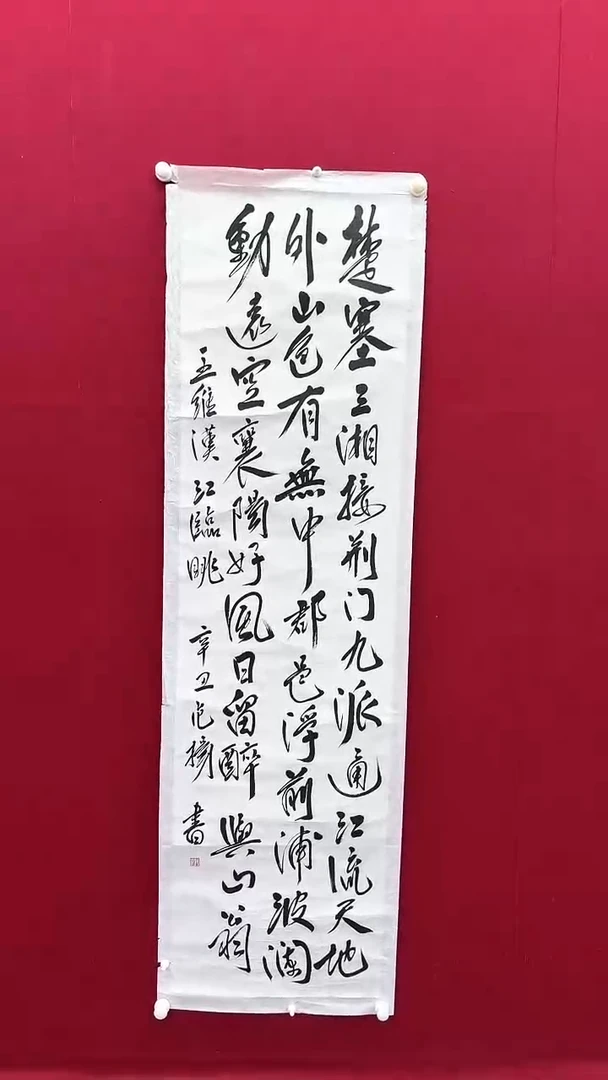 楚塞三湘接荆门九派通江流天地
外山色有無中郡邑浮前浦波澜
動遠空襄陽好風日留醉與山翁
王維漢江臨眺 辛丑 書